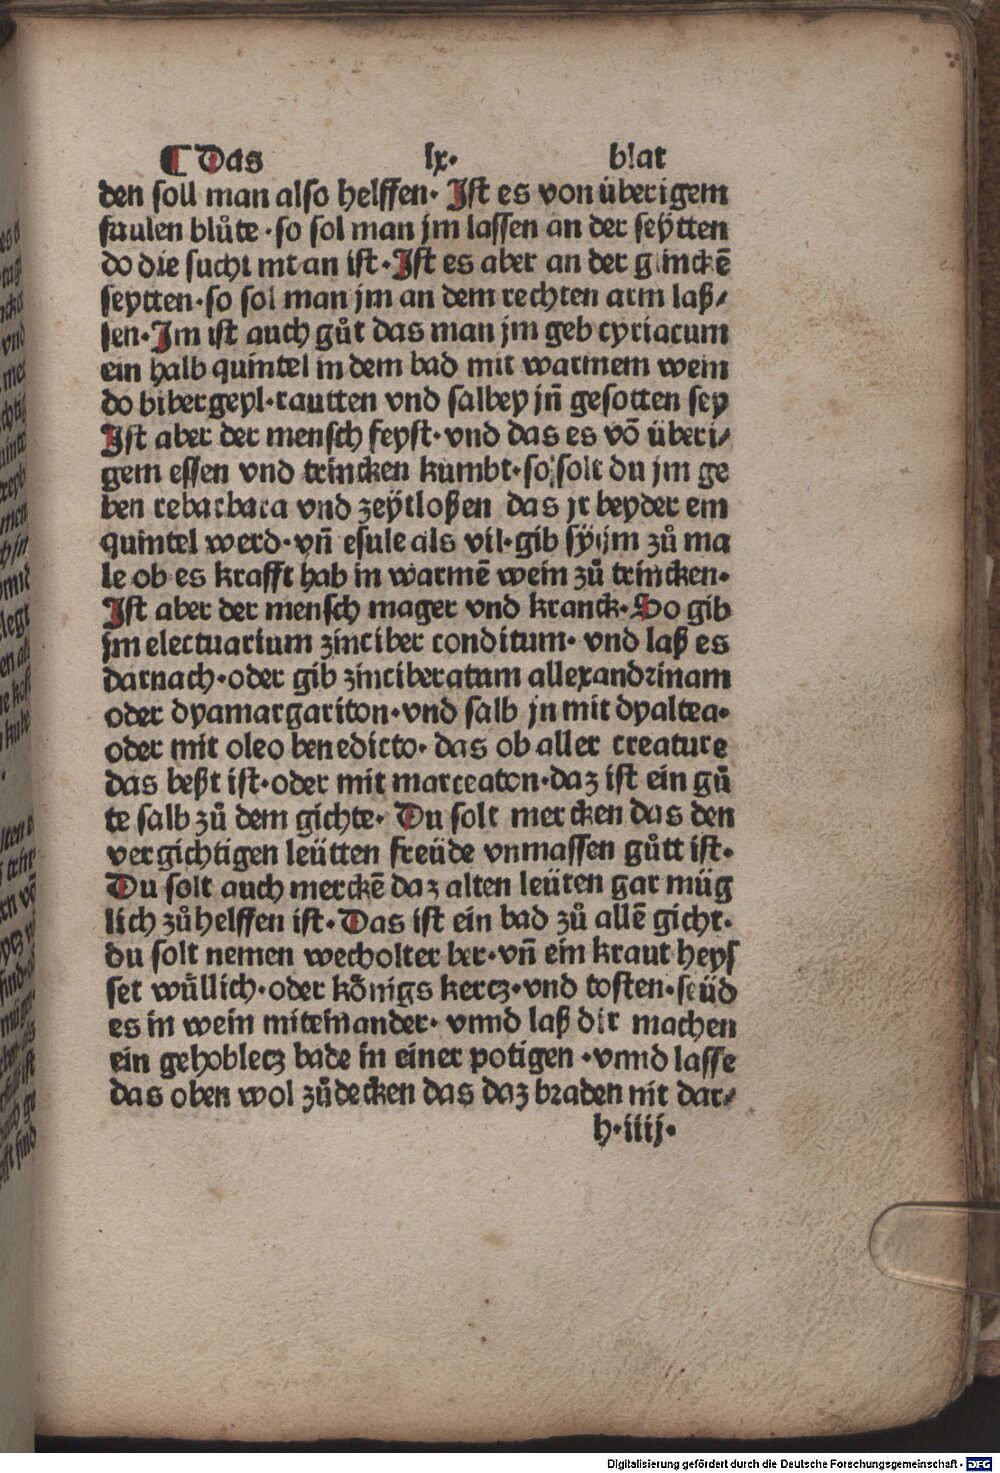 ¶ Das lx· blat
den soll man also helffen· Ist es von überigem
faulen blůte·so sol man jm lassen an der seÿtten
do die sucht mt an ist·Ist es aber an der glinckē
seytten·so sol man jm an dem rechten arm laß/
sen·Im ist auch gůt das man jm geb cyriacum
ein halb quintel in dem bad mit warmem wein
do bibergeyl·rautten vnd salbey jn̄ gesotten sey
Ist aber der mensch feyst·vnd das es vō überi/
gem essen vnd trincken kumbt·so solt du jm ge
ben rebarbara vnd zeÿtloßen das jr beyder ein
quintel werd·vn̄ esule als vil·gib sÿ jm zů ma
le ob es krafft hab in warmē wein zů trincken·
Ist aber der mensch mager vnd kranck·So gib
jm electuarium zinciber conditum· vnd laß es
darnach·oder gib zinciberatum allexandrinam
oder dyamargariton·vnd salb jn mit dyaltea·
oder mit oleo benedicto· das ob aller creature
das beßt ist·oder mit marceaton·daz ist ein gů
te salb zů dem gichte· Du solt mercken das den
vergichtigen leütten freüde vnmassen gůtt ist·
Du solt auch merckē daz alten leüten gar müg
lich zů helffen ist·Das ist ein bad zů allē gicht·
du solt nemen wecholter ber·vn̄ ein kraut heys
set wůllich·oder kőnigs kertz·vnd tosten·seüd
es in wein miteinander· vnnd laß dir machen
ein gehobletz bade in einer potigen ·vnnd lasse
das oben wol zůdecken das daz braden nit dar/
h·iiij·
Digitalisierung gefördert durch die Deutsche Forschungsgemeinschaft - DFG